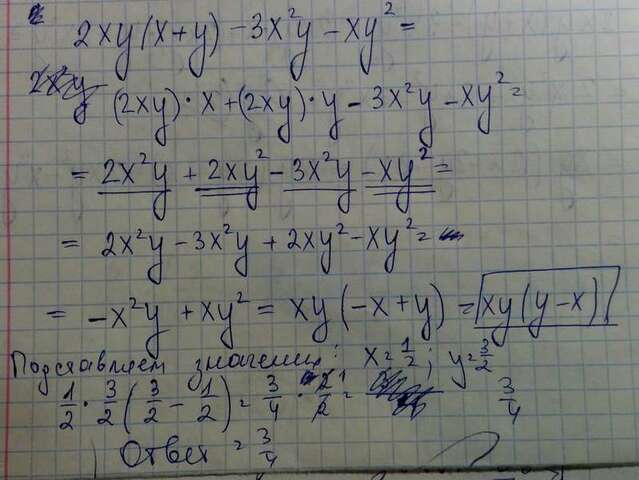 2xy(x+y) - 3x²y - xy² =
(2xy)·x + (2xy)·y - 3x²y - xy² =
= 2x²y + 2xy² - 3x²y - xy² =
= 2x²y - 3x²y + 2xy² - xy² =
= -x²y + xy² = xy(-x+y) = xy(y-x)
Подставляем значения: x = 1/2; y = 3/2
1/2 · 3/2 (3/2 - 1/2) = 3/4 · 2/2 = 3/4
Ответ = 3/4